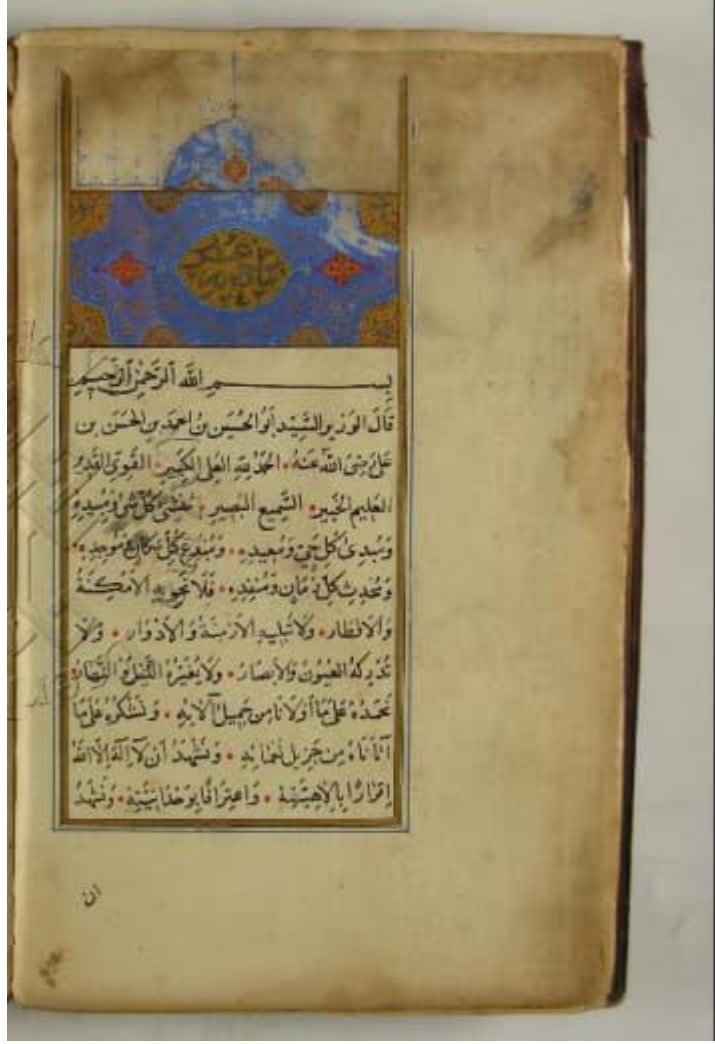 بسم الله الرحمن الرحيم
قال الوزير السيد أبو الحسين بن احمد بن الحسن بن
على رضى الله عنه الحمد لله العلى الكبير القوى القدير
العليم الخبير السميع البصير منشئ كل شئ ومبيده
ومبدئ كل حى ومعيده ومبدع كل مكان وموجده
ومحدث كل زمان ومنفده فلا تحويه الأمكنة
والأقطار ولا تبليه الأزمنة والأدوار ولا
تدركه العيون والأبصار ولا يغيره الليل والنهار
نحمده على ما أولانا من جميل آلائه ونشكره على ما
أتاناه من جزيل نعمائه ونشهد أن لا اله الا الله
إقرارا بالاهيته واعترافا بوحدانيته ونشهد
ان